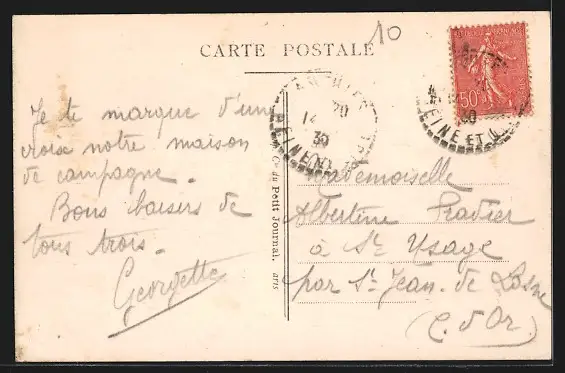 10
CARTE POSTALE
50
30
SEINE ET
Je te marque d'une
croix notre maison
de campagne.
Bons baisers de
tous trois.
Georgette
Cie du Petit Journal.
Mademoiselle
Albertine Pradier
à St Usage
par St Jean. de Losne
(C. d'Or)